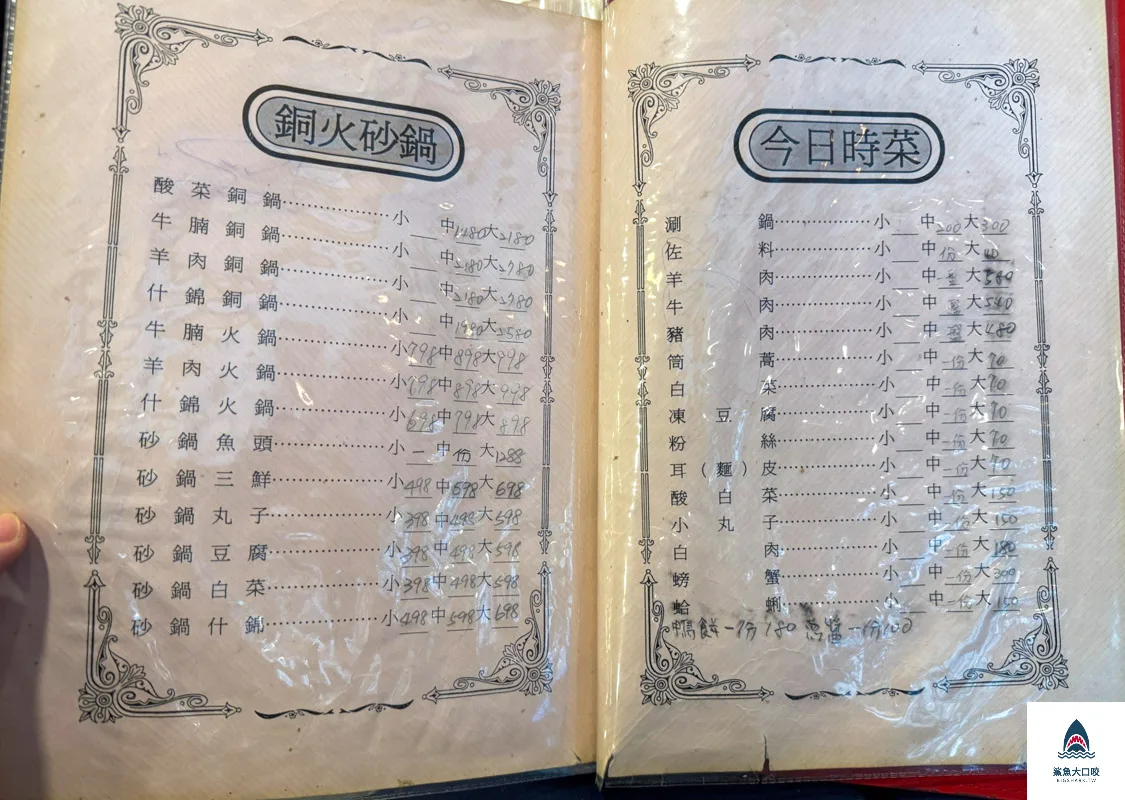 銅火砂鍋
酸菜銅鍋……小 中1480大2180
牛腩銅鍋……小 中2180大2780
羊肉銅鍋……小 中2180大2780
什錦銅鍋……小 中1980大2580
牛腩火鍋……小798中898大998
羊肉火鍋……小798中898大998
什錦火鍋……小698中798大898
砂鍋魚頭……小一中份大1288
砂鍋三鮮……小498中598大698
砂鍋丸子……小398中498大598
砂鍋豆腐……小398中498大598
砂鍋白菜……小398中498大598
砂鍋什錦……小498中598大698
今日時菜
涮鍋……小 中200大300
佐料……小 中份大
羊肉……小 中 大580
牛肉……小 中 大540
豬肉……小 中 大480
筒蒿……小 中一份大70
白菜……小 中一份大70
凍豆腐……小 中一份大70
粉絲……小 中一份大70
耳(麵)皮……小 中一份大70
酸白菜……小 中一份大150
小丸子……小 中一份大150
白肉……小 中一份大180
螃蟹……小 中一份大300
蛤蜊……小 中一份大150
餅一份180 蔥醬一份100
鯊魚大口咬
BIGSHARK.TW